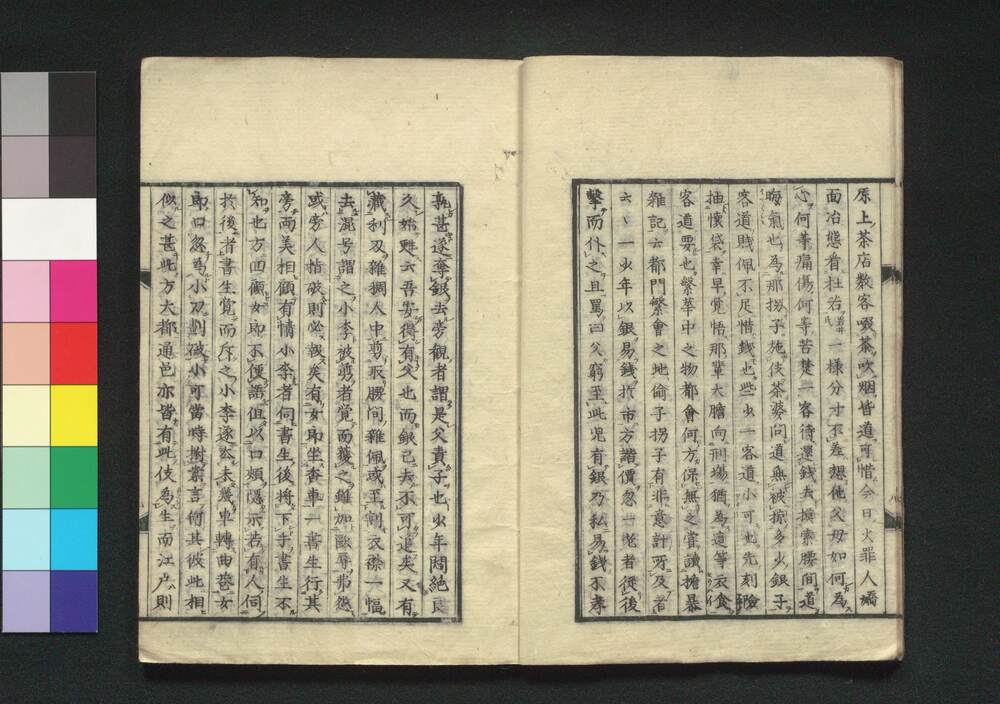 原上茶店数客啜茶吹烟皆道可惜今日火罪人嬌
面冶態看杜若一様分寸不差想他父母如何為
心何等痛傷何等苦楚一客待還錢去摸索腰間道
晦氣也為那拐子施伎茶婆問道無被掠多少銀子
客道賎佩不足惜錢也些少一客道小可也先刻險
抽懐袋幸早覚悟那輩大膽向刑場猶為這等衣食
客道要也繁華中之物都會何方保無之嘗讀擔暴
雜記云都門繁會之地偷子拐子有非意計所及者
六一少年以銀易錢於市方諧價忽一老者從後
擊而仆之且罵曰父窮至此児有銀乃私易錢不孝
甚遂奪銀去旁観者謂是父責子也少年悶絶良
久始甦云吾安得有父也而銀已去不可追矣又有
藏利刃雜稠人中剪取腰間雜佩或至割衣襟一幅
去混号謂之小李被剪者覚而獲之雖加毆辱弗怨
或旁人指破則必報矣有一女郎坐香車一書生行其
旁両美相顧有情小李者伺書生後将下手書生不
知也方回顧女郎不便語但以口頬隠示若有人伺
於後者書生覚而斥之小李遂去未幾車轉曲巷女
郎口忽為小刀割破小可當時拊掌言何其彼此相
似之甚此方大都通邑亦皆有此伎為生而江戸則